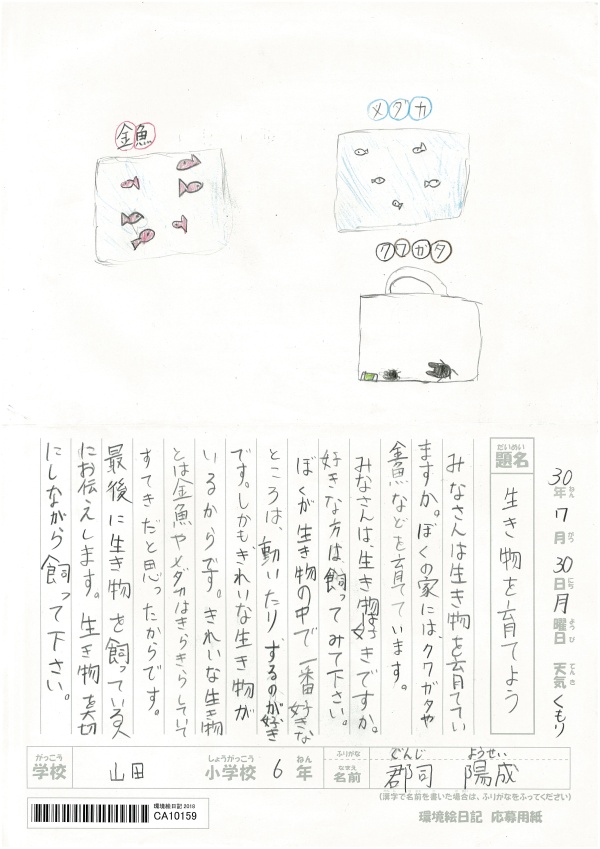 金魚
メダカ
クワガタ
30年7月30日月曜日 天気くもり
ねん がつ にち ようび てんき
だいめい
題名
生き物を育てよう
みなさんは生き物を育ててい
ますか。ぼくの家には、クワガタや
金魚などを育てています。
みなさんは、生き物は好きですか。
好きな方は飼ってみて下さい。
ぼくが生き物の中で一番好きな
ところは、動いたりするのが好き
です。しかもきれいな生き物が
いるからです。きれいな生き物
とは金魚やメダカはきらきらしていて
すてきだと思ったからです。
最後に生き物を飼っている人
にお伝えします。生き物を大切
にしながら飼って下さい。
がっこう しょうがっこう ねん ふりがな ぐんじ ようせい
学校 山田 小学校 6年 なまえ 名前 郡司 陽成
(漢字で名前を書いた場合は、ふりがなをふってください)
環境絵日記 2018
CA10159
環境絵日記 応募用紙